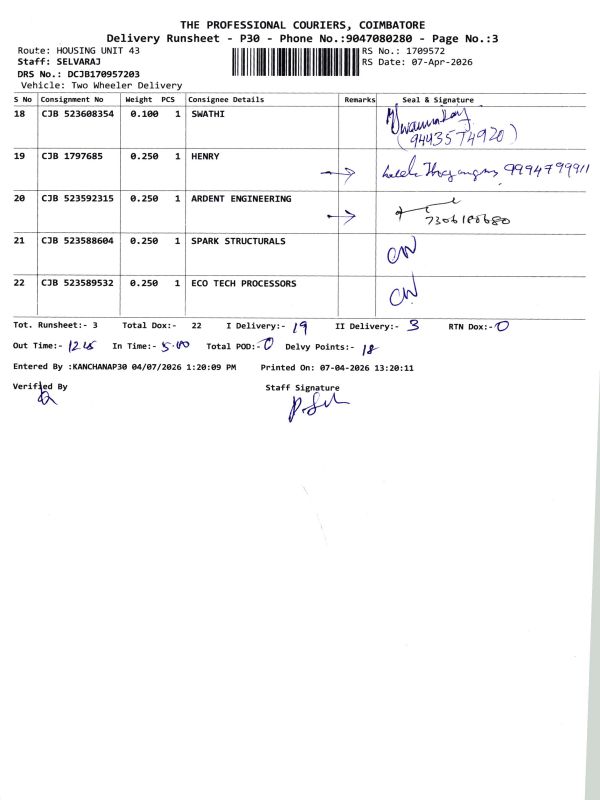 THE PROFESSIONAL COURIERS, COIMBATORE
Delivery Runsheet - P30 - Phone No.:9047080280 - Page No.:3
Route: HOUSING UNIT 43
RS No.: 1709572
Staff: SELVARAJ
RS Date: 07-Apr-2026
DRS No.: DCJB170957203
Vehicle: Two Wheeler Delivery
S No Consignment No Weight PCS Consignee Details Remarks Seal & Signature
18 CJB 523608354 0.100 1 SWATHI
19 CJB 1797685 0.250 1 HENRY 9994799911
20 CJB 523592315 0.250 1 ARDENT ENGINEERING
7306180680
21 CJB 523588604 0.250 1 SPARK STRUCTURALS
22 CJB 523589532 0.250 1 ECO TECH PROCESSORS
Tot. Runsheet:- 3 Total Dox:- 22 I Delivery:- 19 II Delivery:- 3 RTN Dox:- 0
Out Time:- 12.15 In Time:- 5.00 Total POD:- 0 Delvy Points:- 18
Entered By :KANCHANAP30 04/07/2026 1:20:09 PM Printed On: 07-04-2026 13:20:11
Verified By Staff Signature